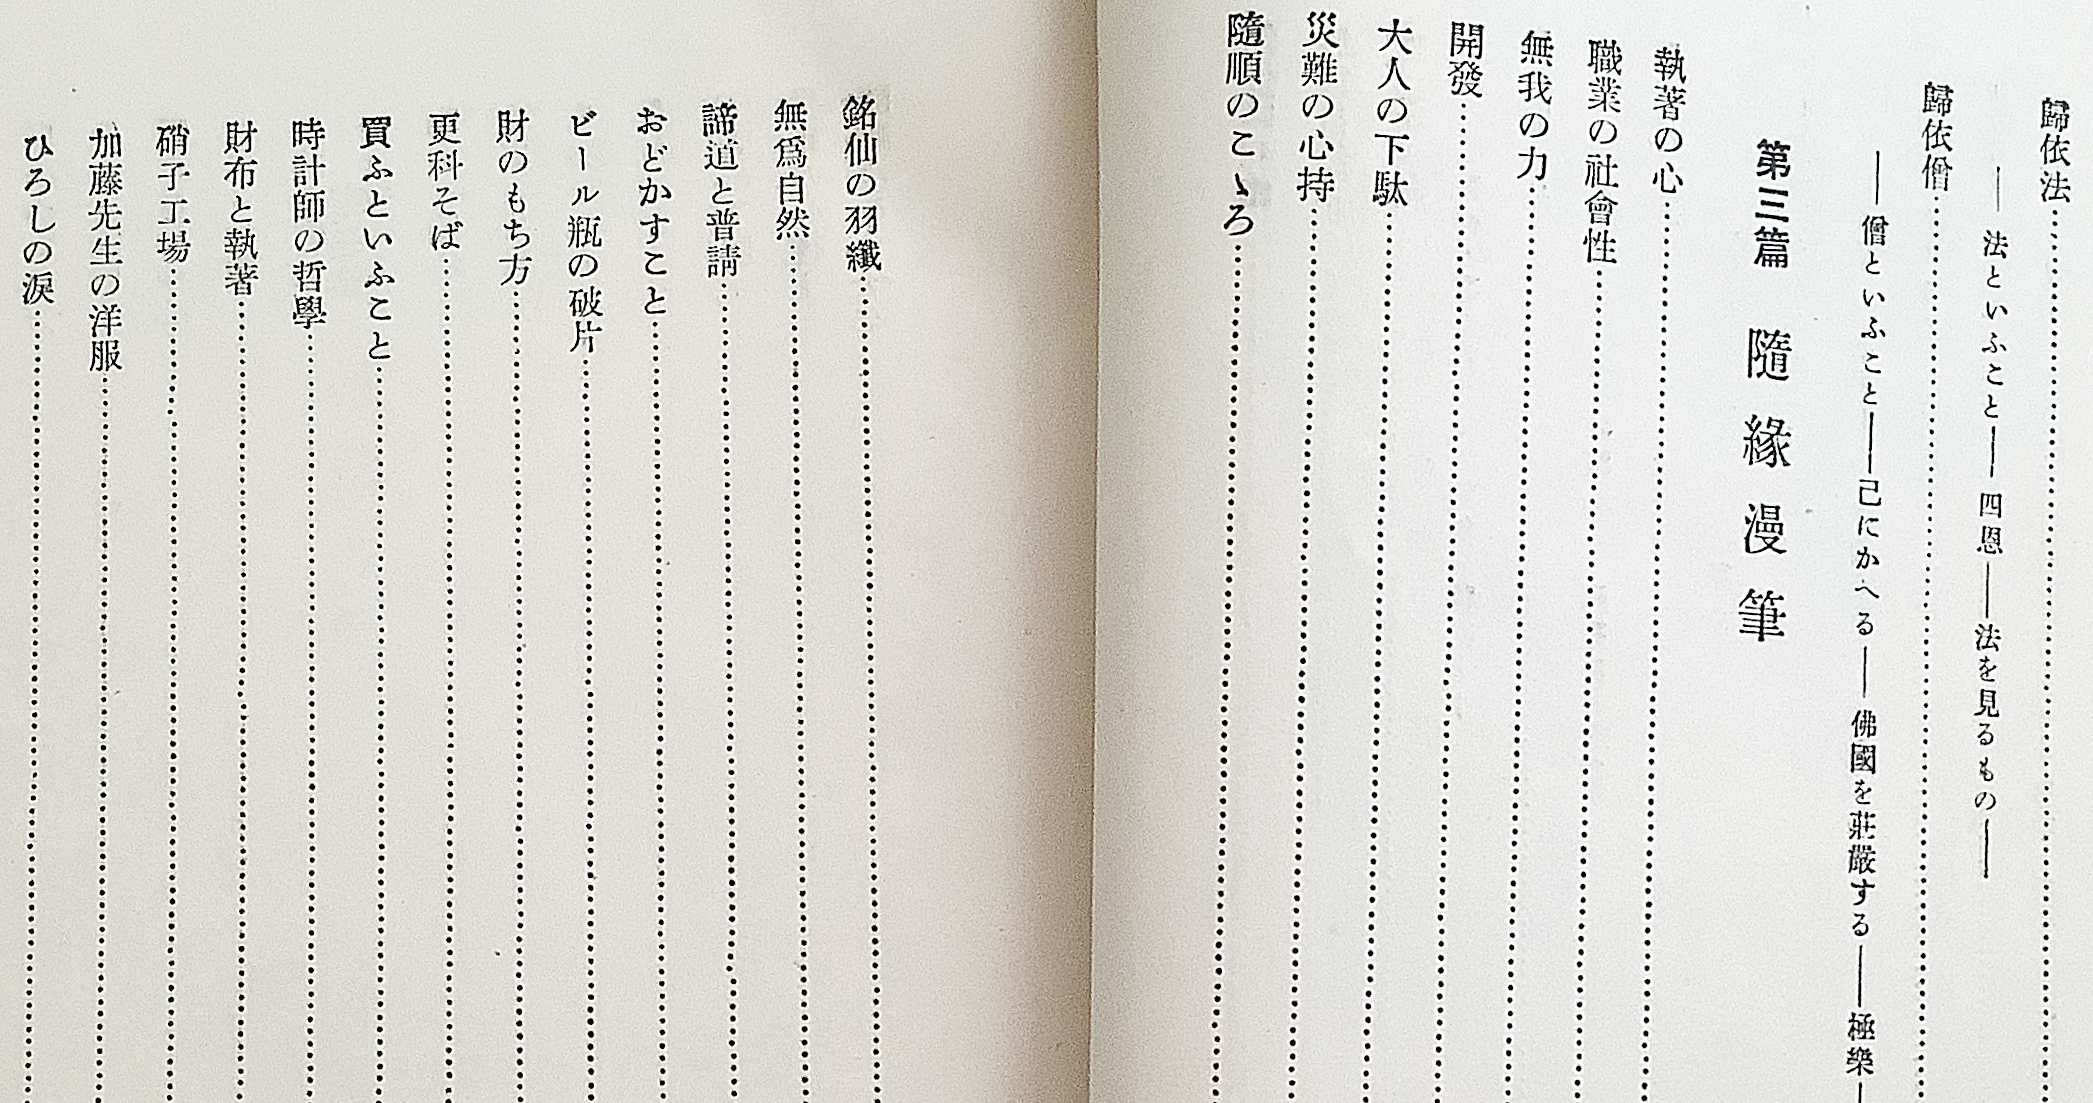 歸依法
――法といふこと――四恩――法を見るもの――
歸依僧
――僧といふこと――己にかへる――佛國を莊嚴する――極樂―
第三篇 隨緣漫筆
執著の心
職業の社會性
無我の力
開發
大人の下駄
災難の心持
隨順のこゝろ
銘仙の羽織
無爲自然
諦道と普請
おどかすこと
ビール瓶の破片
財のもち方
更科そば
買ふといふこと
時計師の哲學
財布と執著
硝子工場
加藤先生の洋服
ひろしの淚